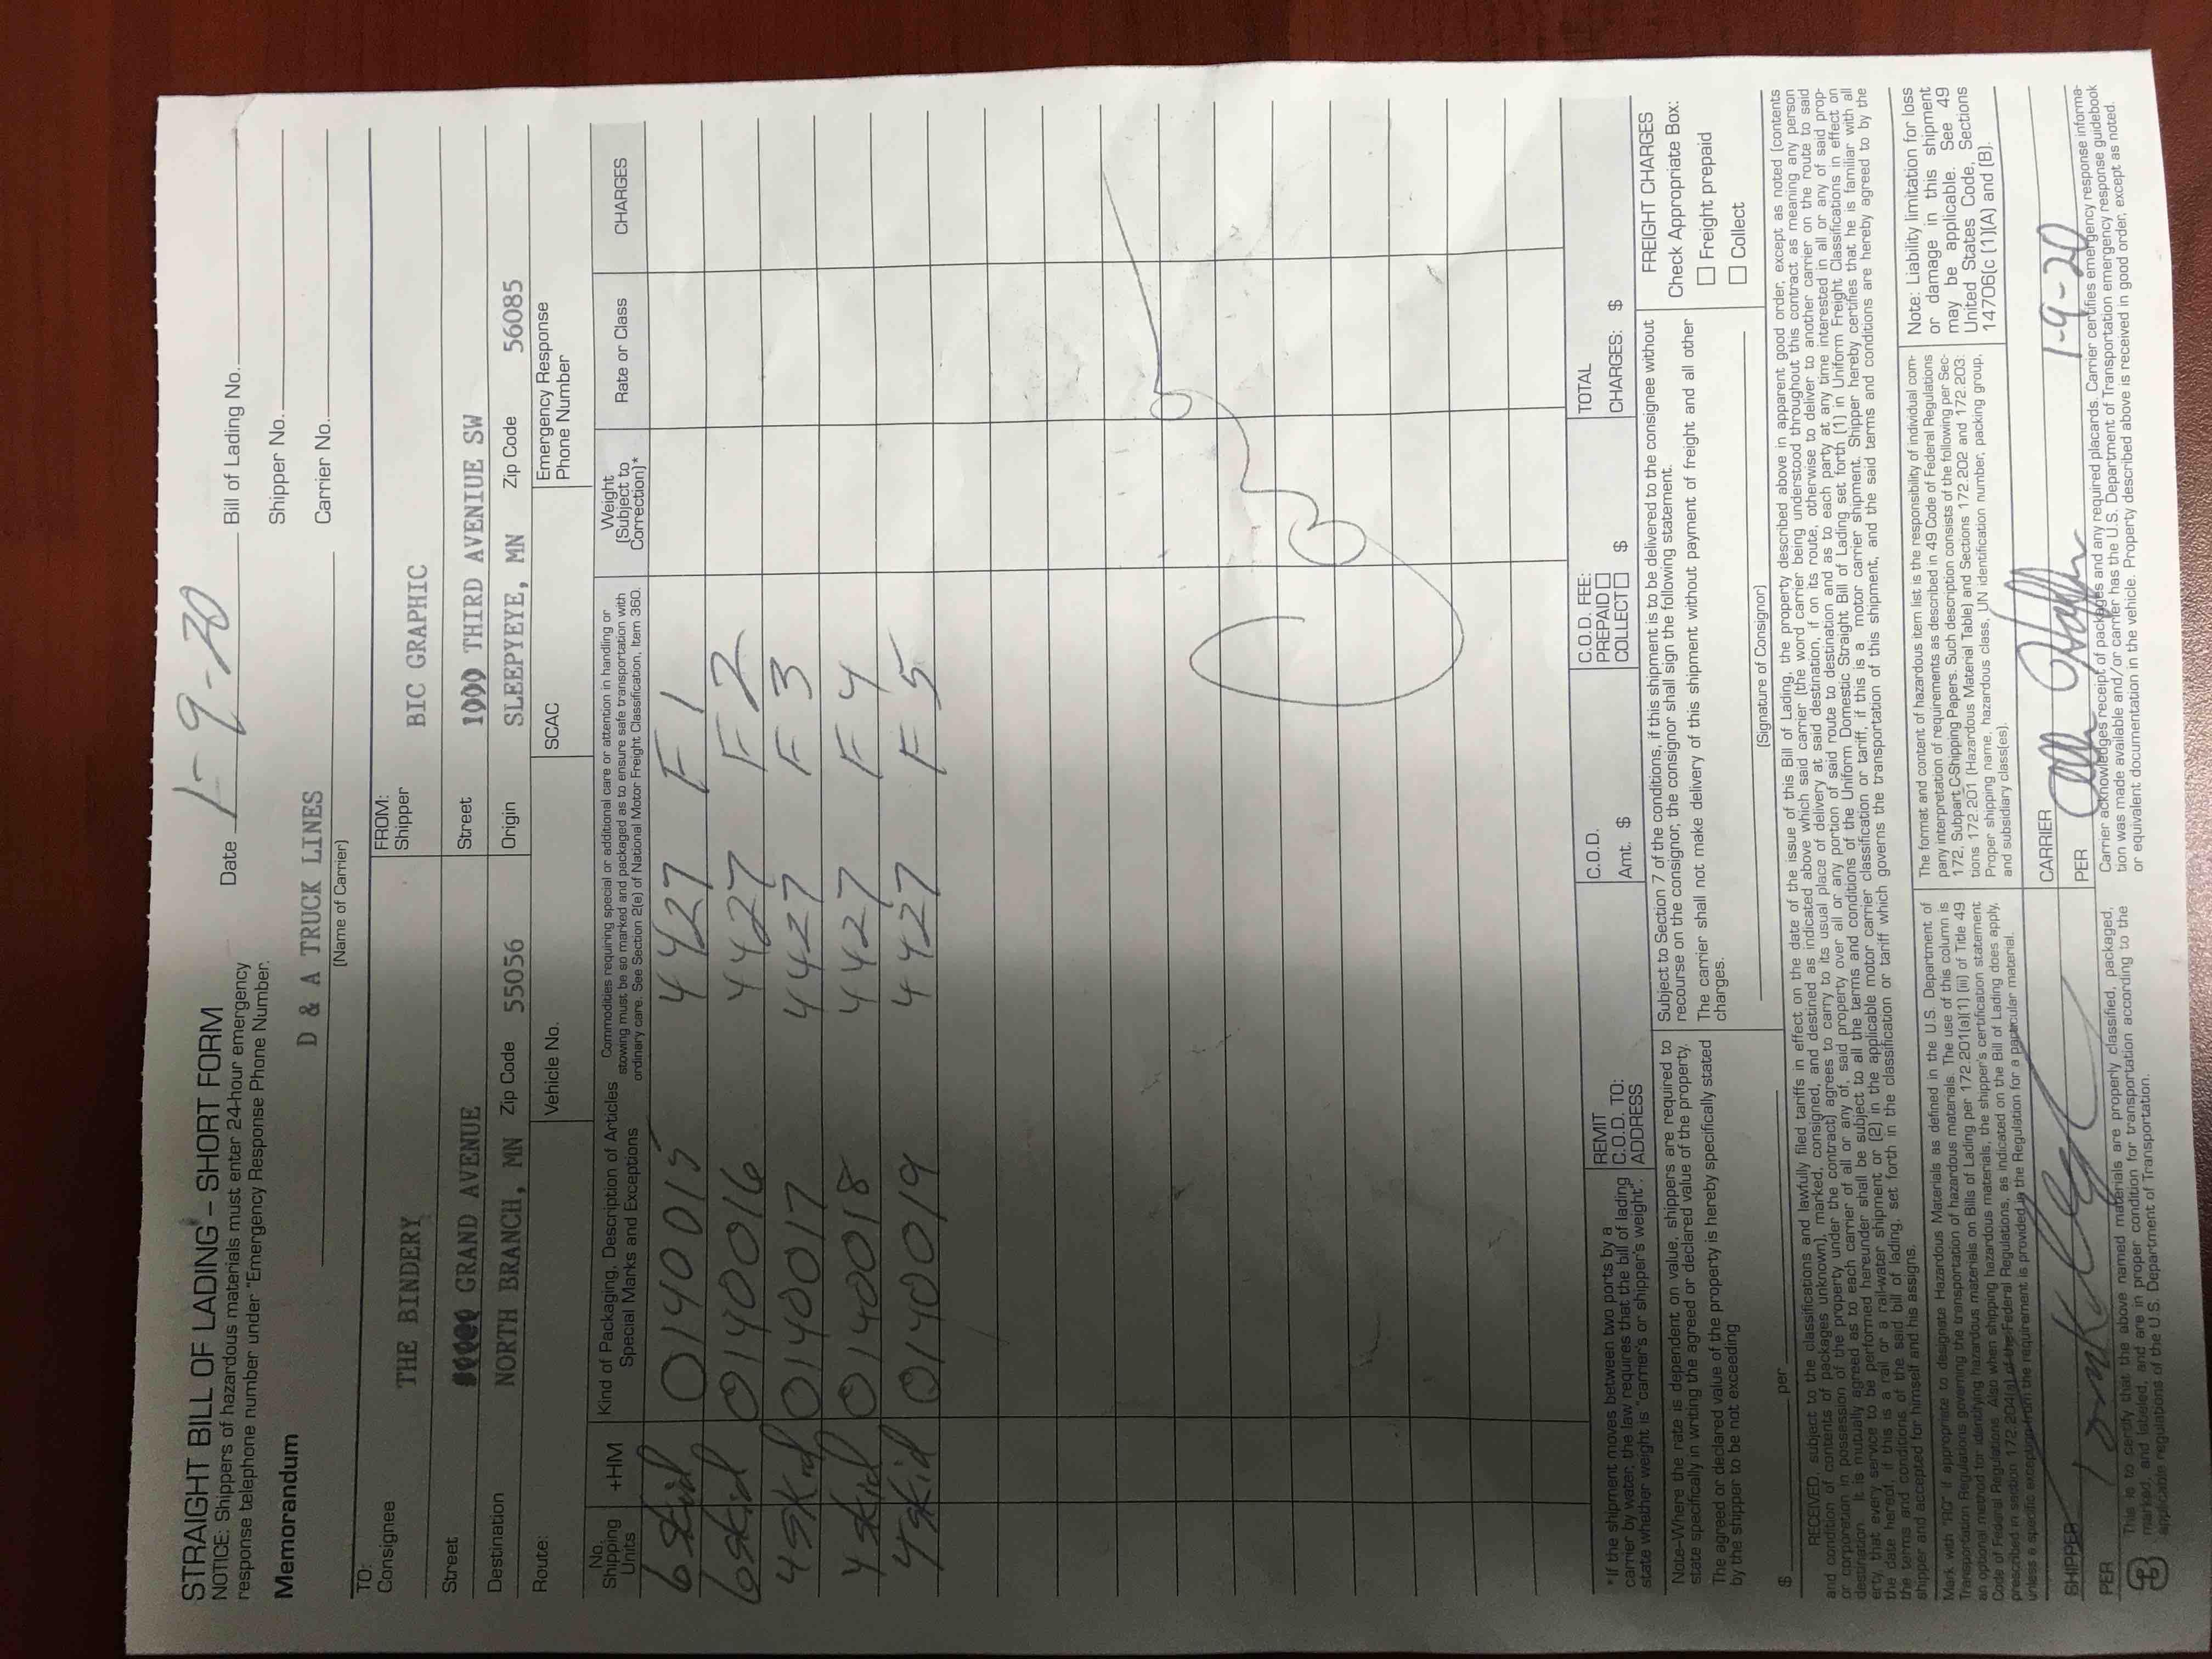 STRAIGHT BILL OF LADING – SHORT FORM
NOTICE: Shippers of hazardous materials must enter 24-hour emergency
response telephone number under "Emergency Response Phone Number.
Memorandum
Date 1-9-20 Bill of Lading No.
Shipper No.
Carrier No.
D & A TRUCK LINES
(Name of Carrier)
TO:
Consignee THE BINDERY
FROM:
Shipper BIC GRAPHIC
Street GRAND AVENUE
Street 1000 THIRD AVENIUE SW
Destination NORTH BRANCH, MN Zip Code 55056
Origin SLEEPYEYE, MN Zip Code 56085
Route: Vehicle No. SCAC Emergency Response
Phone Number
No.
Shipping
Units
+HM
Kind of Packaging, Description of Articles
Special Marks and Exceptions
Commodities requiring special or additional care or attention in handling or
stowing must be so marked and packaged as to ensure safe transportation with
ordinary care. See Section 2(e) of National Motor Freight Classification, Item 360.
Weight
(Subject to
Correction)*
Rate or Class
CHARGES
6 skid 0140015 4427 F1
6 skid 0140016 4427 F2
4 skid 0140017 4427 F3
4 skid 0140018 4427 F4
4 skid 0140019 4427 F5
*If the shipment moves between two ports by a
carrier by water, the law requires that the bill of lading
state whether weight is "carrier's or shipper's weight".
REMIT
C.O.D. TO:
ADDRESS
C.O.D.
Amt. $
C.O.D. FEE:
PREPAID
COLLECT $
TOTAL
CHARGES: $
Note–Where the rate is dependent on value, shippers are required to
state specifically in writing the agreed or declared value of the property.
The agreed or declared value of the property is hereby specifically stated
by the shipper to be not exceeding
$ per
Subject to Section 7 of the conditions, if this shipment is to be delivered to the consignee without
recourse on the consignor, the consignor shall sign the following statement.
The carrier shall not make delivery of this shipment without payment of freight and all other
charges.
(Signature of Consignor)
FREIGHT CHARGES
Check Appropriate Box:
Freight prepaid
Collect
RECEIVED, subject to the classifications and lawfully filed tariffs in effect on the date of the issue of this Bill of Lading, the property described above in apparent good order, except as noted (contents
and condition of contents of packages unknown), marked, consigned, and destined as indicated above which said carrier (the word carrier being understood throughout this contract as meaning any person
or corporation in possession of the property under the contract) agrees to carry to its usual place of delivery at said destination, if on its route, otherwise to deliver to another carrier on the route to said
destination. It is mutually agreed as to each carrier of all or any of, said property over all or any portion of said route to destination and as to each party at any time interested in all or any of said prop-
erty, that every service to be performed hereunder shall be subject to all the terms and conditions of the Uniform Domestic Straight Bill of Lading set forth (1) in Uniform Freight Classifications in effect on
the date hereof, if this is a rail or a rail-water shipment, or (2) in the applicable motor carrier classification or tariff, if this is a motor carrier shipment. Shipper hereby certifies that he is familiar with all
the terms and conditions of the said bill of lading, set forth in the classification or tariff which governs the transportation of this shipment, and the said terms and conditions are hereby agreed to by the
shipper and accepted for himself and his assigns.
Mark with "RQ" if appropriate to designate Hazardous Materials as defined in the U.S. Department of
Transportation Regulations governing the transportation of hazardous materials. The use of this column is
an optional method for identifying hazardous materials on Bills of Lading per 172.201(a)(1) (iii) of Title 49
Code of Federal Regulations. Also when shipping hazardous materials, the shipper's certification statement
prescribed in section 172.204(a) of the Federal Regulations, as indicated on the Bill of Lading does apply,
unless a specific exception from the requirement is provided in the Regulation for a particular material.
The format and content of hazardous item list is the responsibility of individual com-
pany interpretation of requirements as described in 49 Code of Federal Regulations
172, Subpart C-Shipping Papers. Such description consists of the following per Sec-
tions 172.201 (Hazardous Material Table) and Sections 172.202 and 172.203:
Proper shipping name, hazardous class, UN identification number, packing group,
and subsidiary class(es).
Note: Liability limitation for loss
or damage in this shipment
may be applicable. See 49
United States Code, Sections
14706(c (1)(A) and (B).
SHIPPER
PER
CARRIER
PER 1-9-20
This is to certify that the above named materials are properly classified, packaged,
marked, and labeled, and are in proper condition for transportation according to the
applicable regulations of the U.S. Department of Transportation.
Carrier acknowledges receipt of packages and any required placards. Carrier certifies emergency response informa-
tion was made available and/or carrier has the U.S. Department of Transportation emergency response guidebook
or equivalent documentation in the vehicle. Property described above is received in good order, except as noted.